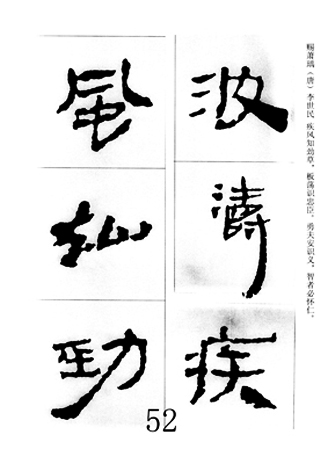 赐萧瑀（唐）李世民 疾风知劲草，板荡识忠臣。勇夫安识义，智者必怀仁。
波涛疾
風知勁
52